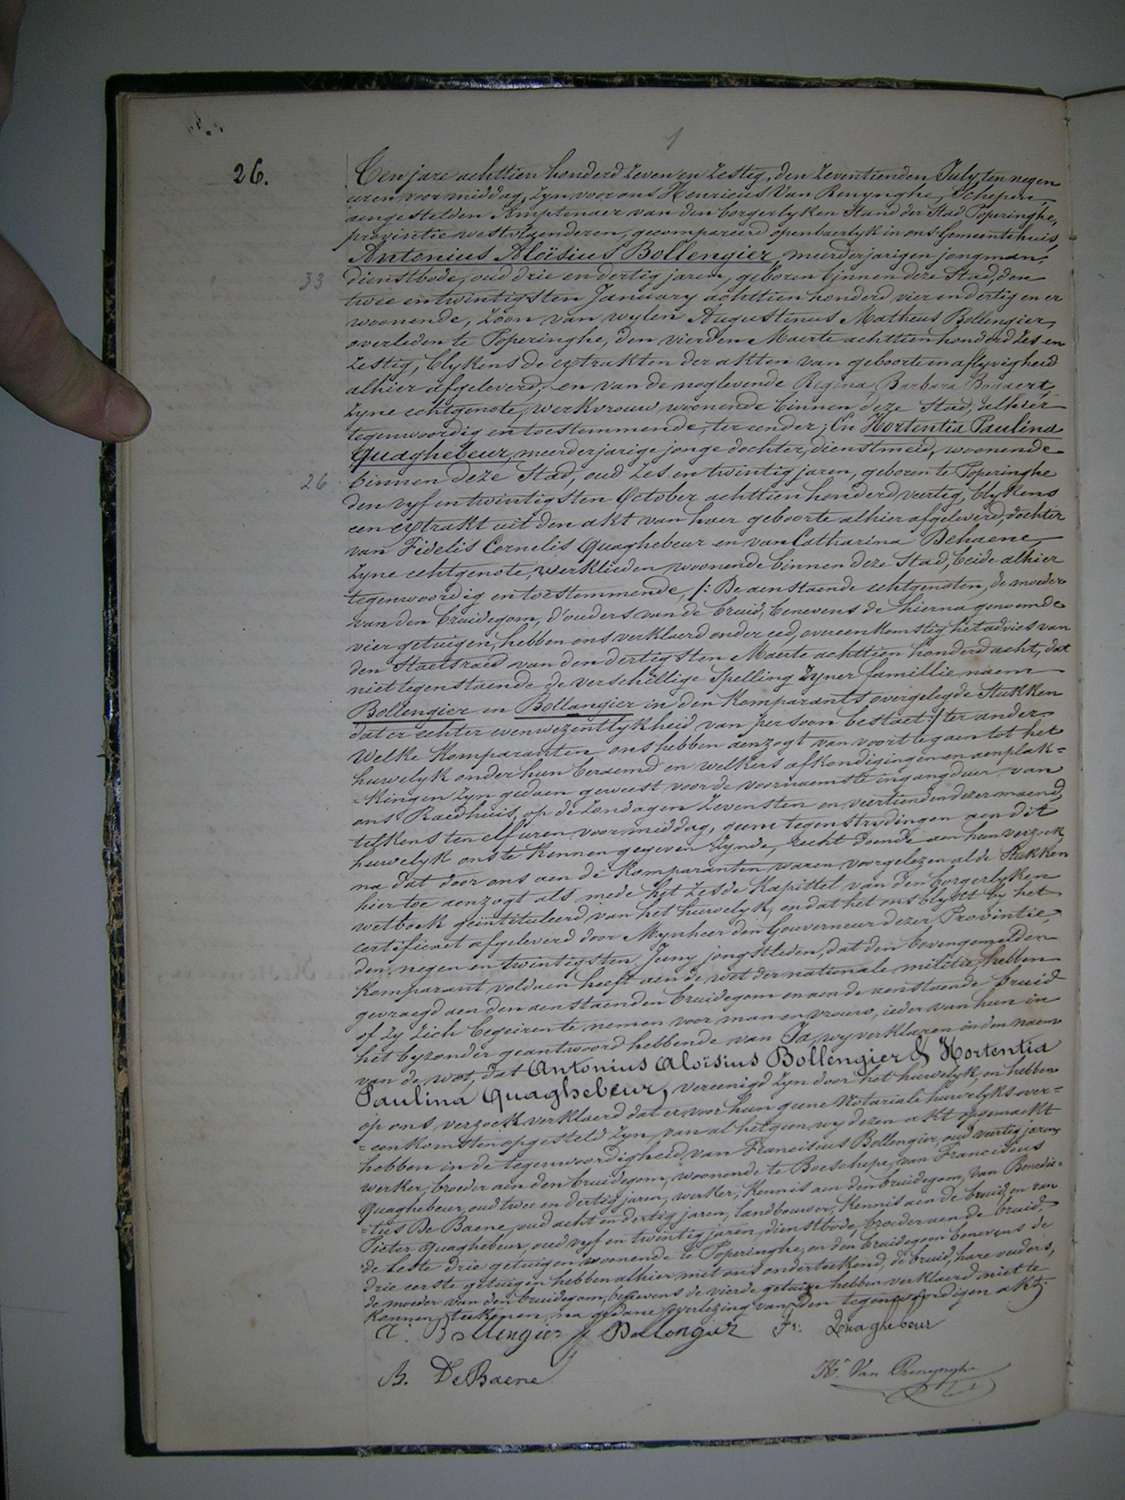 1
26.
Ten jare achttien honderd zeven en zestig, den zeventienden July, ten negen
uren voor middag, zyn voor ons Henricus Van Renynghe, Schepen,
aengestelden Amptenaer van den borgerlyken Stand der Stad Poperinghe,
provintie westvlaenderen, gecompareerd openbaerlyk in ons Gemeentehuis,
Antonius Aloïsius Bollengier, meerderjarigen jongman,
33
dienstbode, oud drie en dertig jaren, geboren binnen deze Stad, den
twee en twintigsten January achttien honderd vier en dertig en er
woonende, zoon van wylen Augustinus Matheus Bollengier,
overleden te Poperinghe, den vierden Maerte achttien honderd zes en
zestig, blykens de extrakten der akten van geboorte en aflyvigheid
alhier afgeleverd, en van de noglevende Regina Barbara Bouaert,
zyne echtgenote, werkvrouw woonende binnen deze Stad, alhier
tegenwoordig en toestemmende, ter eender; En Hortentia Paulina
Quaghebeur, meerderjarige jonge dochter, dienstmeid, woonende
26
binnen deze Stad, oud zes en twintig jaren, geboren te Poperinghe
den vyf en twintigsten October achttien honderd veertig, blykens
een extrakt uit den akt van haer geboorte alhier afgeleverd, dochter
van Fidelis Cornelis Quaghebeur en van Catharina Behaene,
zyne echtgenote, werklieden woonende binnen deze Stad, beide alhier
tegenwoordig en toestemmende, /: De aenstaende echtgenoten, de moeder
van den bruidegom, d'ouders van de bruid, benevens de hierna genoemde
vier getuigen, hebben ons verklaerd onder eed, overeenkomstig het advies van
den Staetsraed van den dertigsten Maerte achttien honderd acht, dat
niet tegenstaende de verschillige Spelling zyner famillie naem
Bollengier en Bollangier in den Komparants overgelegde Stukken
dat er echter eenwezentlykheid van persoon bestaet :/ ter ander
Welke Komparanten ons hebben aenzogt van voort te gaen tot het
huwelyk onder hun beraemd en welkers afkondigingen en aenplak=
=kingen zyn gedaen geweest voor de voornaemste ingangdeur van
ons Raedhuis, op de zondagen zevensten en veertienden dezer maend,
telkens ten elf uren voor middag, geene tegenstrydingen aen dit
huwelyk ons te kennen gegeven zynde, recht doende aen hun verzoek
na dat door ons aen de Komparanten waren voorgelezen al de Stukken
hier toe aenzogt als mede het zesde Kapittel van den borgerlyken
wetboek geïntituleerd van het huwelyk, en dat het ons blykt by het
certificaet afgeleverd door Mynheer den Gouverneur dezer Provintie
den negen en twintigsten Juny jongstleden, dat den bovengemelden
Komparant voldaen heeft aen de wet der nationale militie, hebben
gevraegd aen den aenstaenden bruidegom en aen de aenstaende bruid
of zy zich begeiren te nemen voor man en vrouw, ieder van hun in
het byzonder geantwoord hebbende van Ja, wy verklaren in den naem
van de wet, dat Antonius Aloïsius Bollengier & Hortentia
Paulina Quaghebeur, vereenigd zyn door het huwelyk, en hebben
op ons verzoek verklaerd dat er voor hun geene Notariale huwelyks over=
=eenkomsten opgesteld zyn, van al hetgeen wy dezen akt opgemaekt
hebben in de tegenwoordigheid van Franciscus Bollengier, oud veertig jaren,
werker, broeder aen den bruidegom, woonende te Boeschepe, van Franciscus
Quaghebeur, oud twee en dertig jaren, werker, Kennis aen den bruidegom, van Benedic=
=tus De Baene, oud acht en dertig jaren, landbouwer, Kennis aen de bruid, en van
Pieter Quaghebeur, oud vyf en twintig jaren, dienstbode, broeder aen de bruid,
de leste drie getuigen woonende te Poperinghe, en den bruidegom benevens de
drie eerste getuigen hebben alhier met ons onderteekend, de bruid, hare ouders,
de moeder van den bruidegom, benevens de vierde getuige hebben verklaerd niet te
konnen teekenen, na gedane overlezing van den tegenwoordigen akt.
A. Bollengier f Bollengier Fs. Quaghebeur
B. DeBaene
Hs Van Renynghe